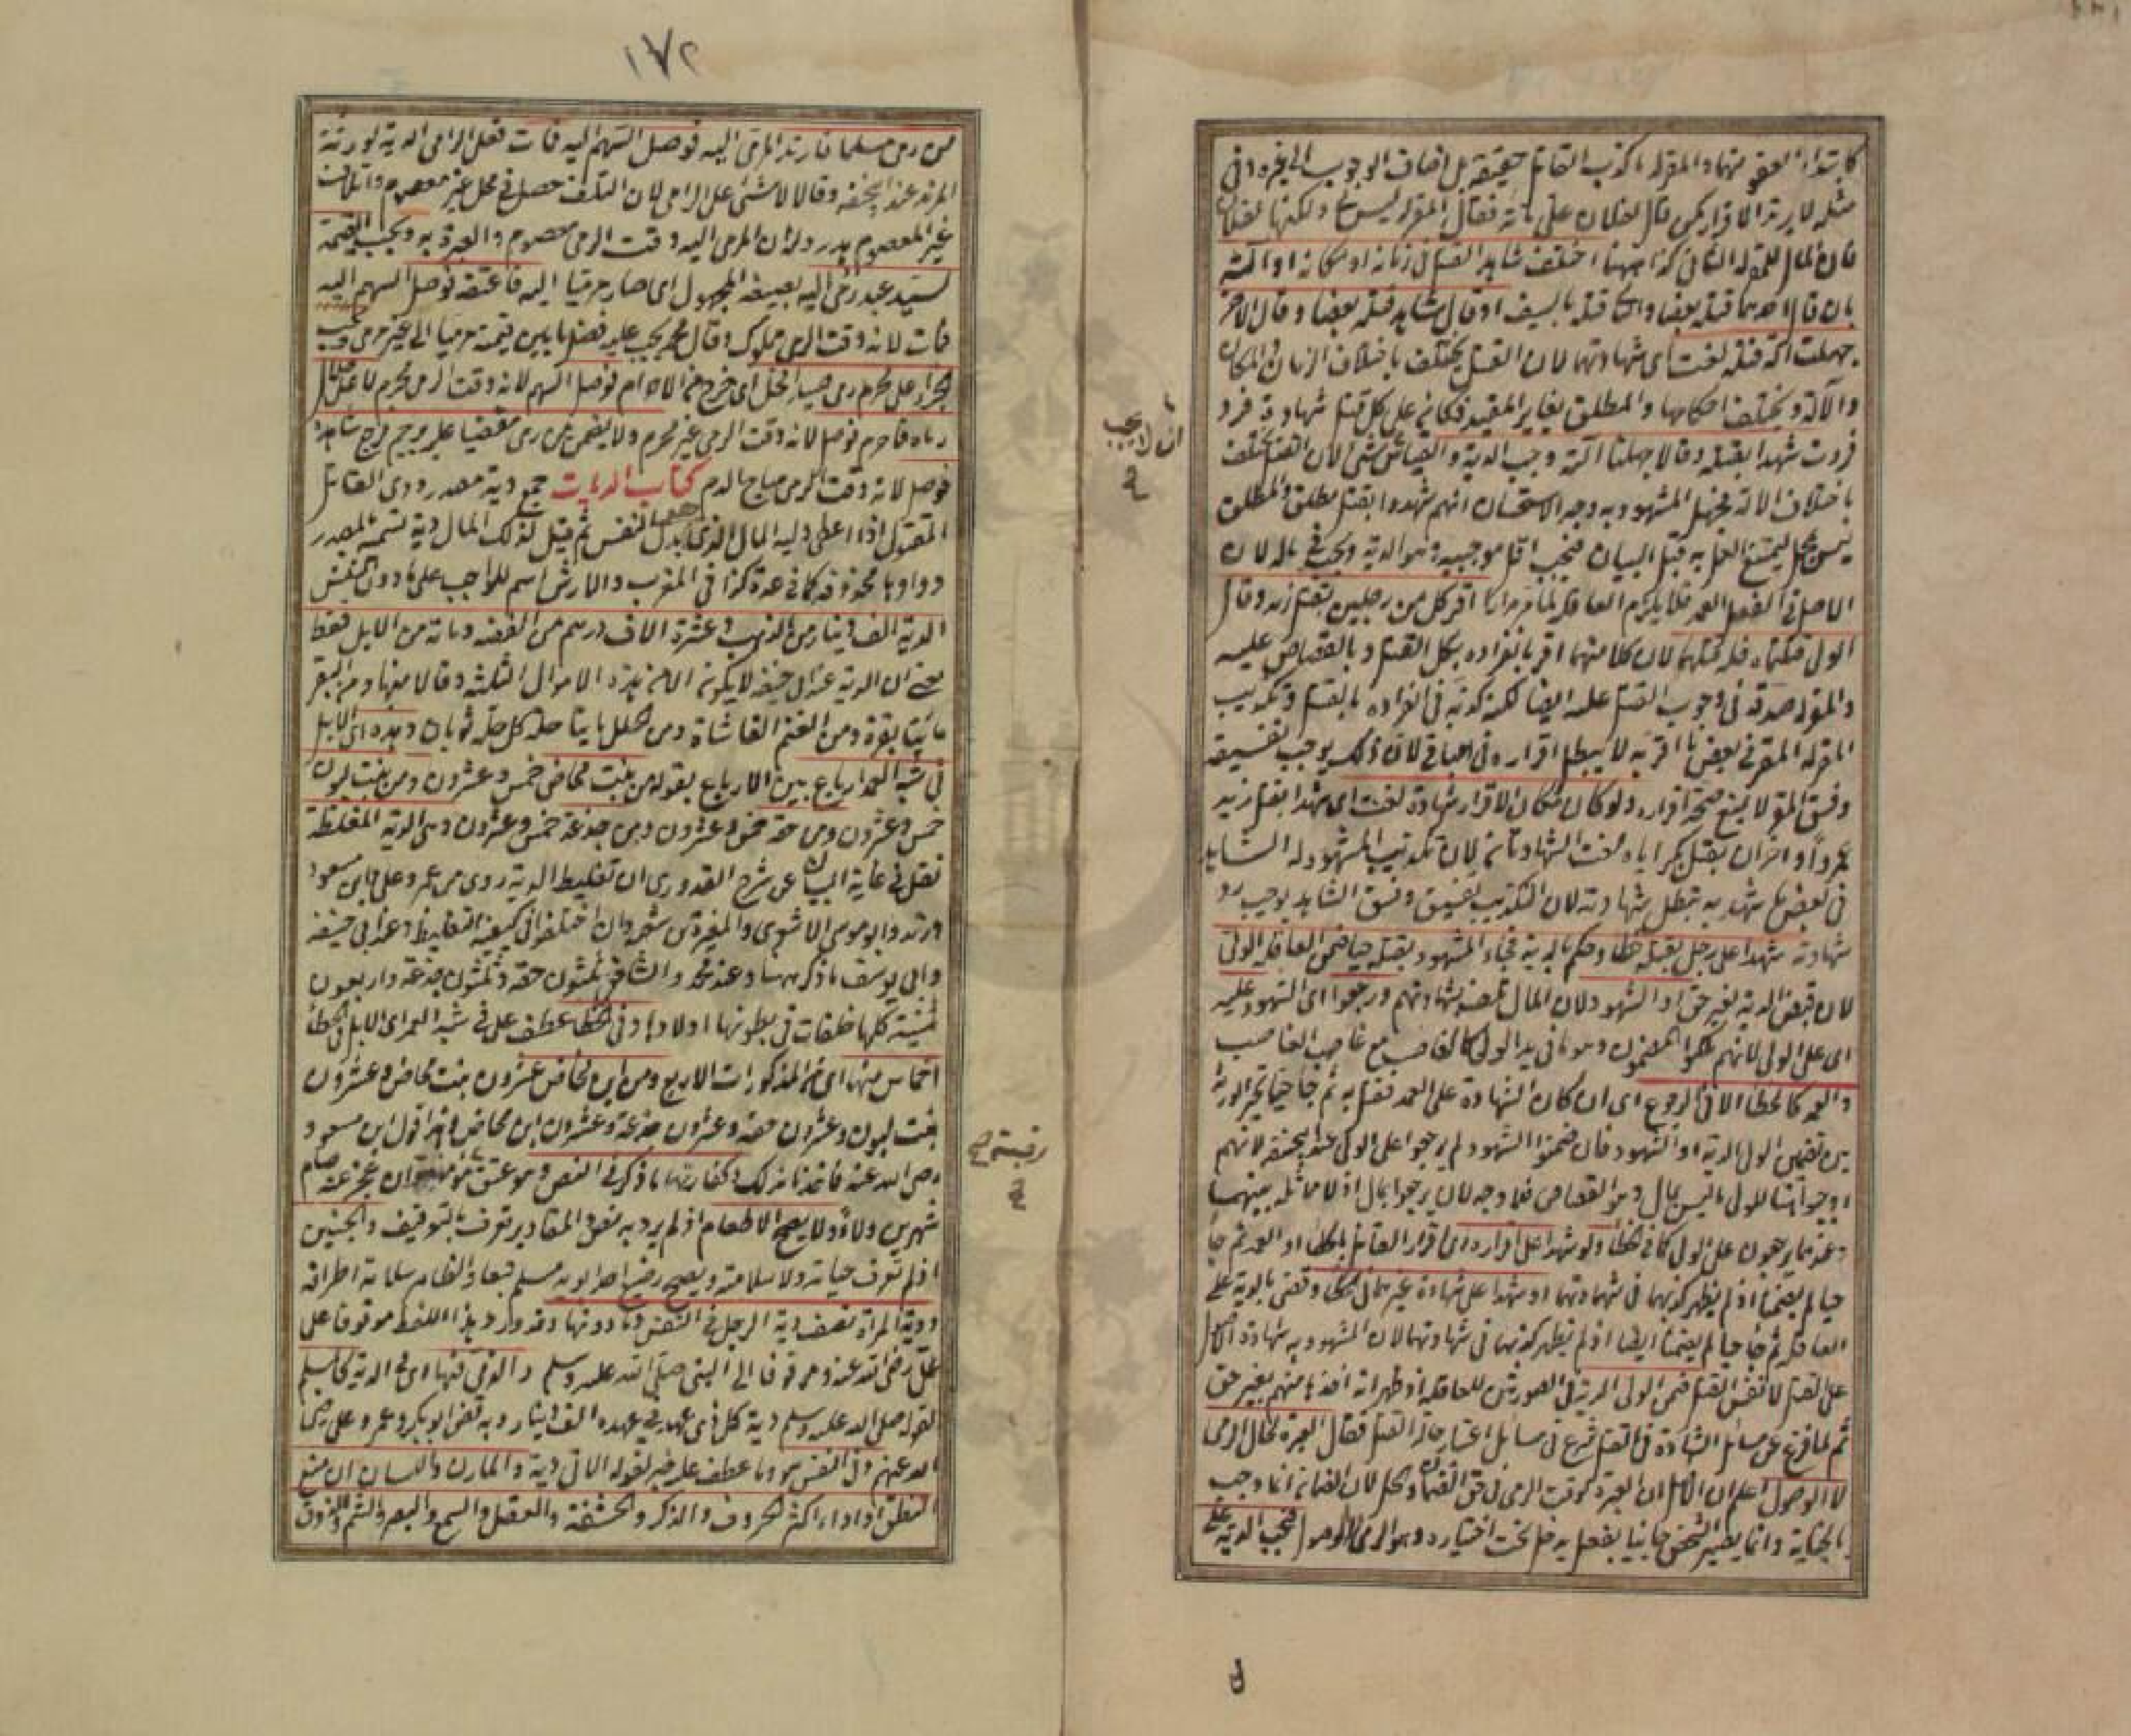 كابتداء العفو منهما والمقر له ما كذب القاتل حقيقة بل اضاف الوجوب الى غيره وفي
مثله لا يرتد الاقرار كمن قال لفلان على مائة فقال المقر له ليس لى ولكنها لفلان
فان المال للمقر له الثاني كذا ههنا اختلف شاهدا القتل في زمانه او مكانه او آلته
بان قال احدهما قتله بعصا والآخر قتله بالسيف او قال شاهد قتله بعصا وقال الآخر
جهلت آلة قتله لغت اى شهادتهما لان القتل يختلف باختلاف الزمان والمكان
والآلة ويختلف احكامها والمطلق يغاير المقيد فكان على كل قتل شهادة فرد
فردت شهدا بقتله وقالا جهلنا آلته وجب الدية والقياس لان القتل يختلف
باختلاف الآلة فجهل المشهود به وجه الاستحسان انهم شهدوا بقتل مطلق والمطلق
ليس بمجمل ليمتنع العمل به قبل البيان فيجب اقل موجبيه وهو الدية ويجب في ماله لان
الاصل في الفعل العمد فلا يلزم العاقلة لما مر مرارا اقر كل من رجلين بقتل زيد وقال
الولى قتلتماه فله قتلهما لان كلا منهما اقر بانفراده بكل القتل وبالقصاص عليه
والمقر له صدقه في وجوب القتل عليه ايضا لكنه كذبه في انفراده بالقتل وتكذيب
المقر له المقر في بعض ما اقر به لا يبطل اقراره في الباقي لان ذلك يوجب تفسيقه
وفسق المقر لا يمنع صحة اقراره ولو كان مكان الاقرار شهادة لغت اى شهدا بقتل زيد
عمروا وآخران بقتل بكر اياه لغت الشهادتان لان تكذيب المشهود له الشاهد
في بعض ما شهد به تبطل شهادته لان التكذيب تفسيق وفسق الشاهد يوجب رد
شهادته شهدا على رجل بقتله خطأ وحكم بالدية فجاء المشهود بقتله حيا ضمن العاقلة الولى
لان قبض الدية بغير حق او الشهود لان المال تلف بشهادتهم ورجعوا اى الشهود عليه
اى على الولى لانهم ملكوا المضمون وهو ما في يد الولى كالغاصب مع غاصب الغاصب
والعمد كالخطأ الا في الرجوع اى ان كان الشهادة على العمد فقتل به ثم جا حيا تخير الورثة
بين تضمين الولى الدية او الشهود فان ضمنوا الشهود لم يرجعوا على الولى عند ابي حنيفة لانهم
اوجبوا للولى ما ليس بمال وهو القصاص فلا وجه لان يرجعوا بمال اذ لا مماثلة بينهما
وعندهما يرجعون على الولى كما في الخطأ ولو شهدا على اقراره اى اقرار القاتل بالخطأ او العمد ثم جا
حيا لم يضمنا اذ لم يظهر كذبهما في شهادتهما او شهدا على شهادة غيرهما في الخطأ وقضى بالدية على
العاقلة ثم جا حيا لم يضمنا ايضا اذ لم يظهر كذبهما في شهادتهما لان المشهود به شهادة الاصل
على القتل لا نفس القتل ضمن الولى الدية في الصورتين للعاقلة اذ ظهر انه اخذها منهم بغير حق
ثم لما فرغ عن مسائل الشهادة في القتل شرع في مسائل اعتبار حالة القتل فقال العبرة لحال الرمى
لا الوصول اعلم ان الاصل ان العبرة لوقت الرمى في حق الضمان والحل لان الضمان انما وجب
بالجناية وانما يصير الشخص جانيا بفعل يدخل تحت اختياره وهو الرمى لا الوصول فتجب الدية على
ان لا يجب
١٧٢
من رمى مسلما فارتد المرمى اليه فوصل السهم اليه فمات فعلى الرامى الدية لورثة
المرتد عند ابي حنيفة وقالا لا شئ على الرامى لان التلف حصل في محل غير معصوم واتلاف
غير المعصوم هدر وله ان المرمى اليه وقت الرمى معصوم والعبرة به ويجب القيمة
لسيد عبد رمى اليه بصيغة المجهول اى صار مرميا اليه فاعتقه فوصل السهم اليه
فمات لانه وقت الرمى مملوك وقال محمد يجب عليه فضل ما بين قيمته مرميا الى غير مرمى ويجب
الجزاء على محرم رمى صيدا فحل اى خرج من الاحرام فوصل السهم لانه وقت الرمى محرم لا على حلال
رماه فاحرم فوصل لانه وقت الرمى غير محرم ولا يضمن من رمى مقضيا عليه برجم فرجع شاهده
فوصل لانه وقت الرمى مباح الدم كتاب الديات جمع دية مصدر ودى القاتل
المقتول اذا اعطى وليه المال الذى هو بدل النفس ثم قيل لذلك المال دية تسمية بالمصدر
وواوها محذوفة كما في عدة كذا في المغرب والارش اسم للواجب على ما دون النفس
الدية الف دينار من الذهب وعشرة الاف درهم من الفضة ومائة من الابل فقط
يعنى ان الدية عند ابي حنيفة لا يكون الا من هذه الاموال الثلثة وقالا منها ومن البقر
مائتا بقرة ومن الغنم الفا شاة ومن الحلل مائتا حلة كل حلة ثوبان وهذه اى الابل
في شبه العمد ارباع بين الارباع بقوله من بنت مخاض خمس وعشرون ومن بنت لبون
خمس وعشرون ومن حقة خمس وعشرون ومن جذعة خمس وعشرون وهى الدية المغلظة
نقل في غاية البيان عن شرح القدورى ان تغليظ الدية روى عن عمر وعلى وابن مسعود
وزيد وابو موسى الاشعرى والمغيرة بن شعبة وان اختلفوا في كيفية التغليظ وعند ابي حنيفة
وابى يوسف ما ذكر ههنا وعند محمد والشافعى ثلثون حقة وثلثون جذعة واربعون
ثنية كلها خلفات في بطونها اولادها وفي الخطأ عطف على في شبه العمد اى الابل في الخطأ
اخماس منها اى من المذكورات الاربع ومن ابن مخاض عشرون بنت مخاض وعشرون
بنت لبون وعشرون حقة وعشرون جذعة وعشرون ابن مخاض وهذا قول ابن مسعود
رضى الله عنه فاخذنا بذلك وكفارتهما ما ذكر في النص وهو عتق مؤمنة وان عجز عنه صام
شهرين ولاء ولا يصح الاطعام اذ لم يرد به نص والمقادير تعرف بالتوقيف والجنين
اذ لم تعرف حياته ولا سلامته ويصح رضيع احد ابويه مسلم تبعا والظاهر سلامة اطرافه
ودية المرأة نصف دية الرجل في النفس وما دونها وقد ورد هذا اللفظ موقوفا على
على رضى الله عنه ومرفوعا الى النبى صلى الله عليه وسلم والذمى فيها اى في الدية كالمسلم
لقوله صلى الله عليه وسلم دية كل ذى عهد في عهده الف دينار وبه قضى ابو بكر وعمر وعلى رضى
الله عنهم وفي النفس هو وما عطف عليه خبر لقوله الاتى دية والمارن واللسان ان منع
النطق او اداء اكثر الحروف والذكر والحشفة والعقل والسمع والبصر والشم والذوق
رقبة صح